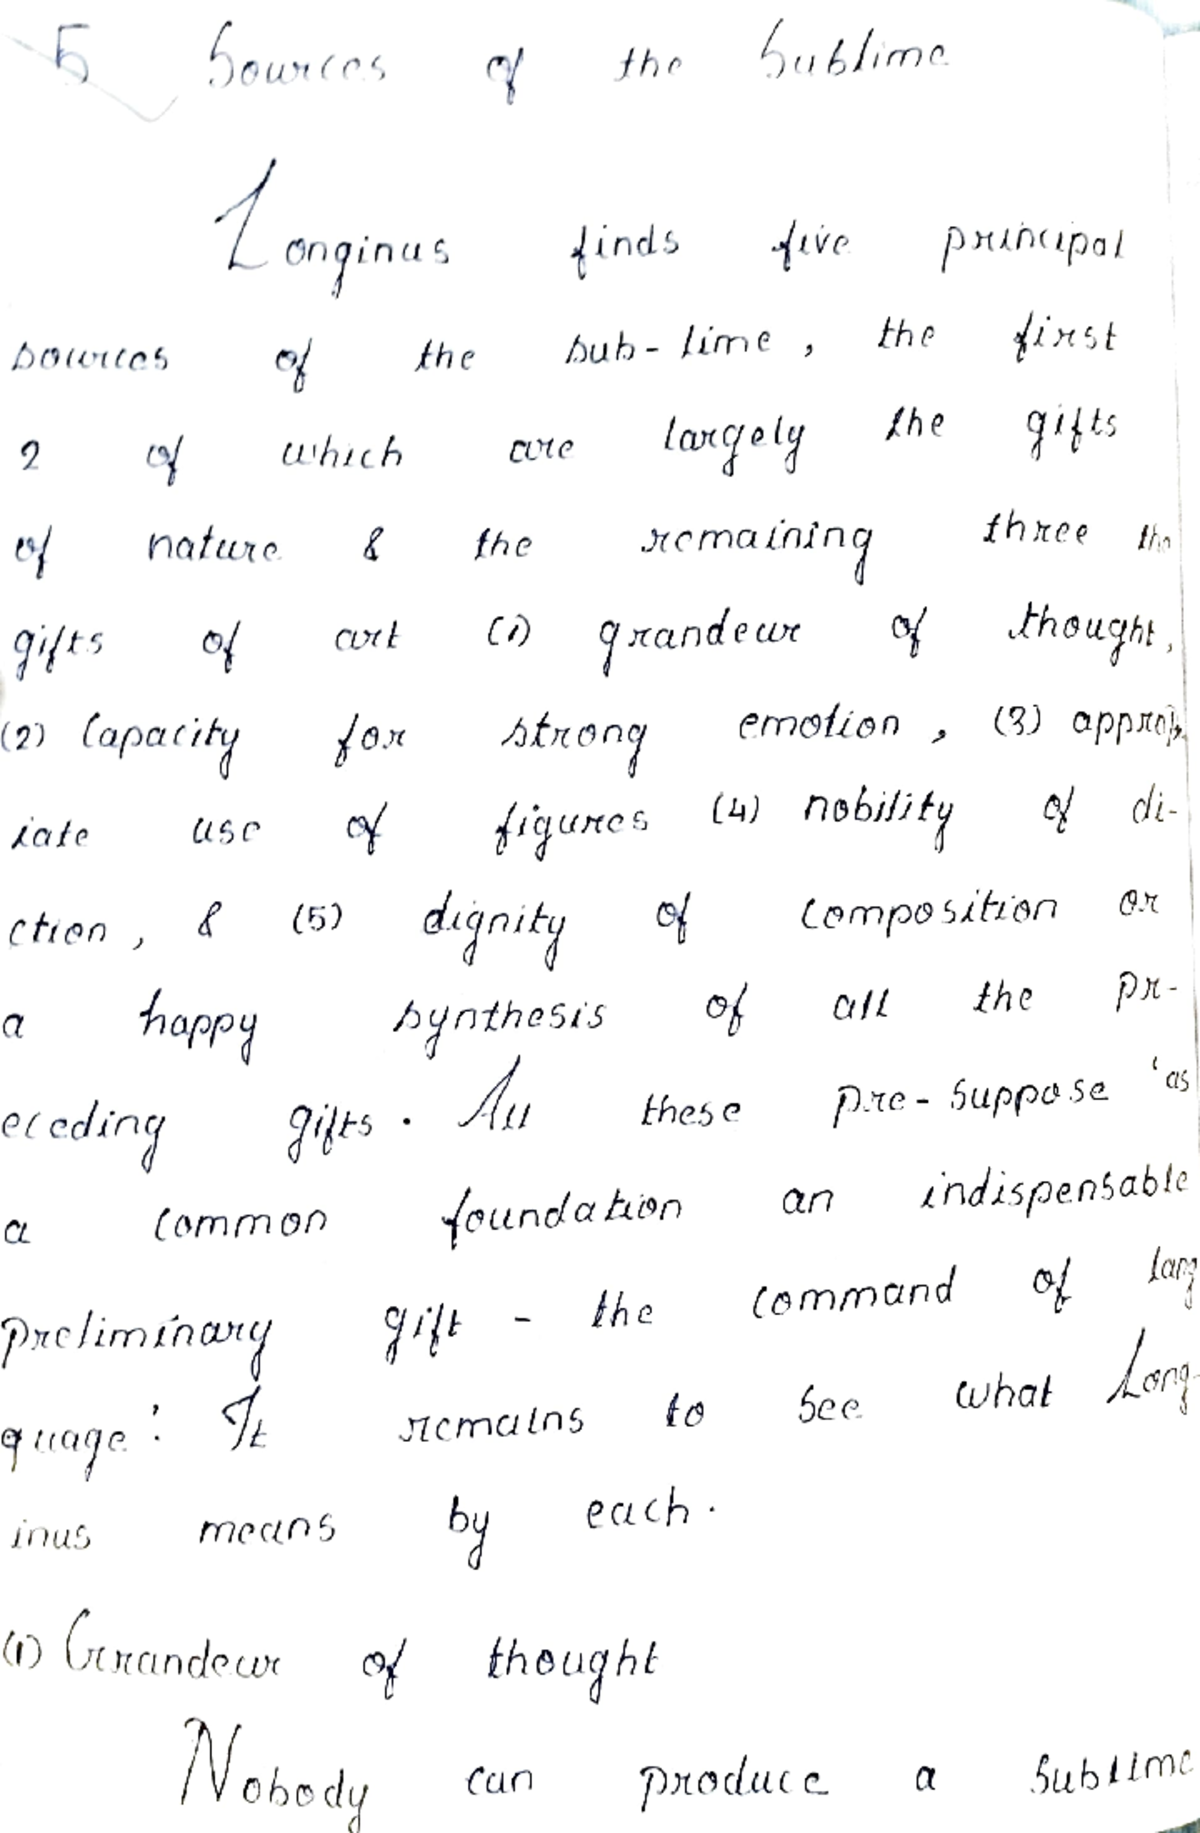 5 Sources of the Sublime
Longinus finds five principal
sources of the sub-lime, the first
2 of which are largely the gifts
of nature & the remaining three the
gifts of art (1) grandeur of thought,
(2) Capacity for strong emotion, (3) approp
iate use of figures (4) nobility of di-
ction, & (5) dignity of composition or
a happy synthesis of all the pr-
eceding gifts. All these pre-suppose 'as
a common foundation an indispensable
preliminary gift - the command of lang
guage'. It remains to see what Long-
inus means by each.
(1) Grandeur of thought
Nobody can produce a sublime